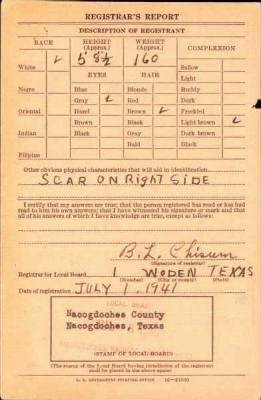 REGISTRAR'S REPORT
DESCRIPTION OF REGISTRANT
RACE HEIGHT (Approx.) WEIGHT (Approx.) COMPLEXION
White ✓ 5' 8½ 160 Sallow
EYES HAIR Light
Negro Blue Blonde Ruddy
Gray ✓ Red Dark
Oriental Hazel Brown ✓ Freckled
Brown Black Light brown ✓
Indian Black Gray Dark brown
Bald Black
Filipino
Other obvious physical characteristics that will aid in identification
SCAR ON Right SIDE
I certify that my answers are true; that the person registered has read or has had
read to him his own answers; that I have witnessed his signature or mark and that
all of his answers of which I have knowledge are true, except as follows:
B. L. Chisum
(Signature of registrar)
Registrar for Local Board 1 WODEN TEXAS
(Number) (City or county) (State)
Date of registration JULY 1. 1941
LOCAL BOARD
Nacogdoches County
Nacogdoches, Texas
(STAMP OF LOCAL BOARD)
(The stamp of the Local Board having jurisdiction of the registrant
shall be placed in the above space.)
U. S. GOVERNMENT PRINTING OFFICE